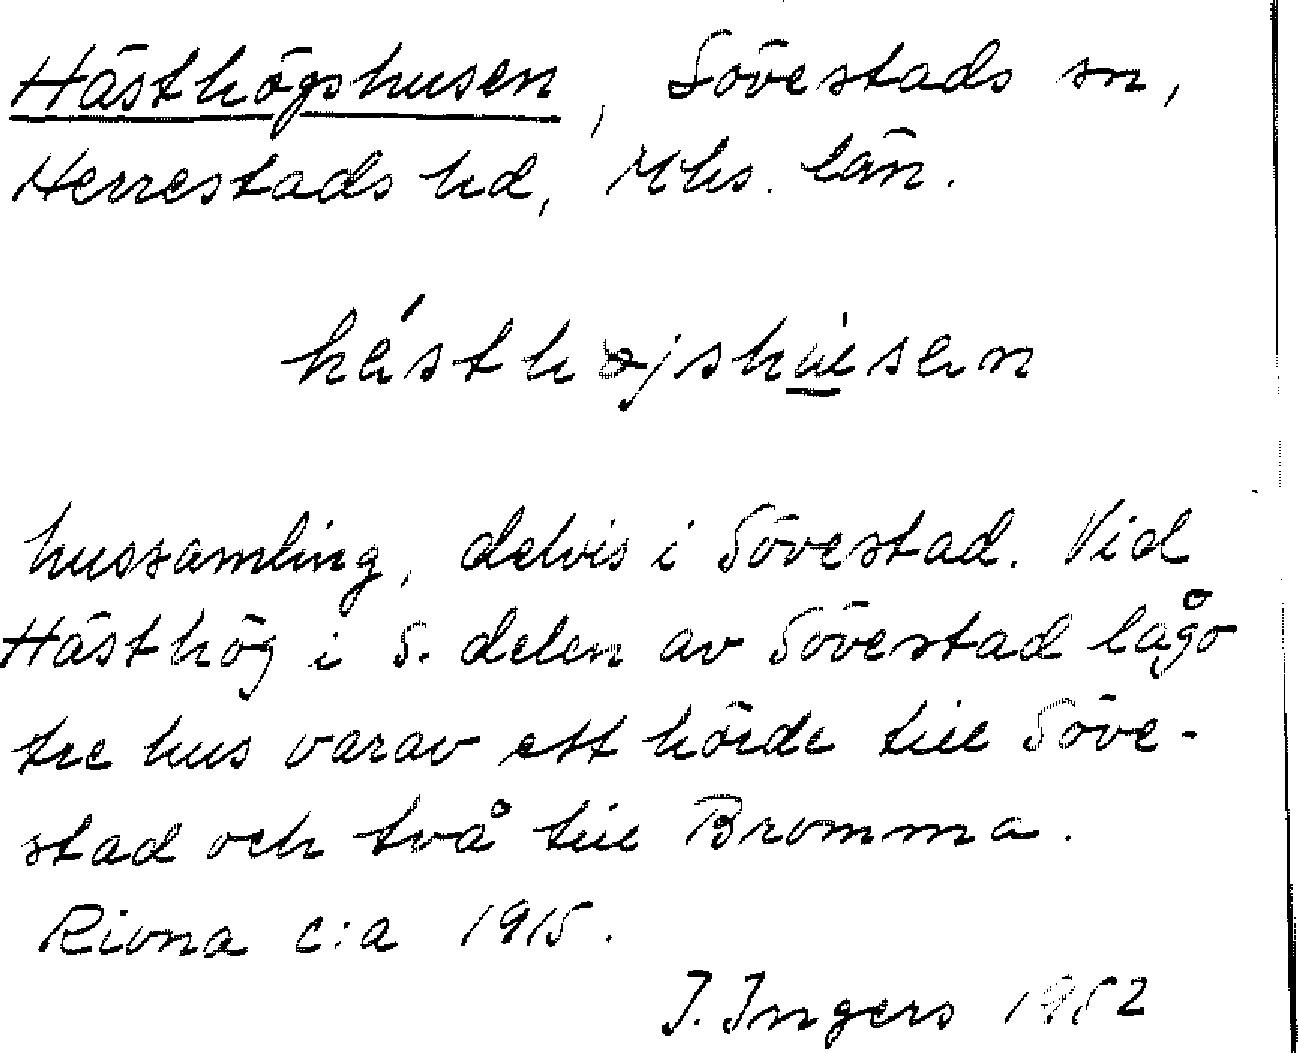 Hästhögshusen, Sövestads sn,
Herrestads hd, Mhs. län.
hästhøjshu̲sen
hussamling, delvis i Sövestad. Vid
Hästhög i S. delen av Sövestad lågo
tre hus varav ett hörde till Söve-
stad och två till Bromma.
Rivna c:a 1915.
I. Ingers 1952